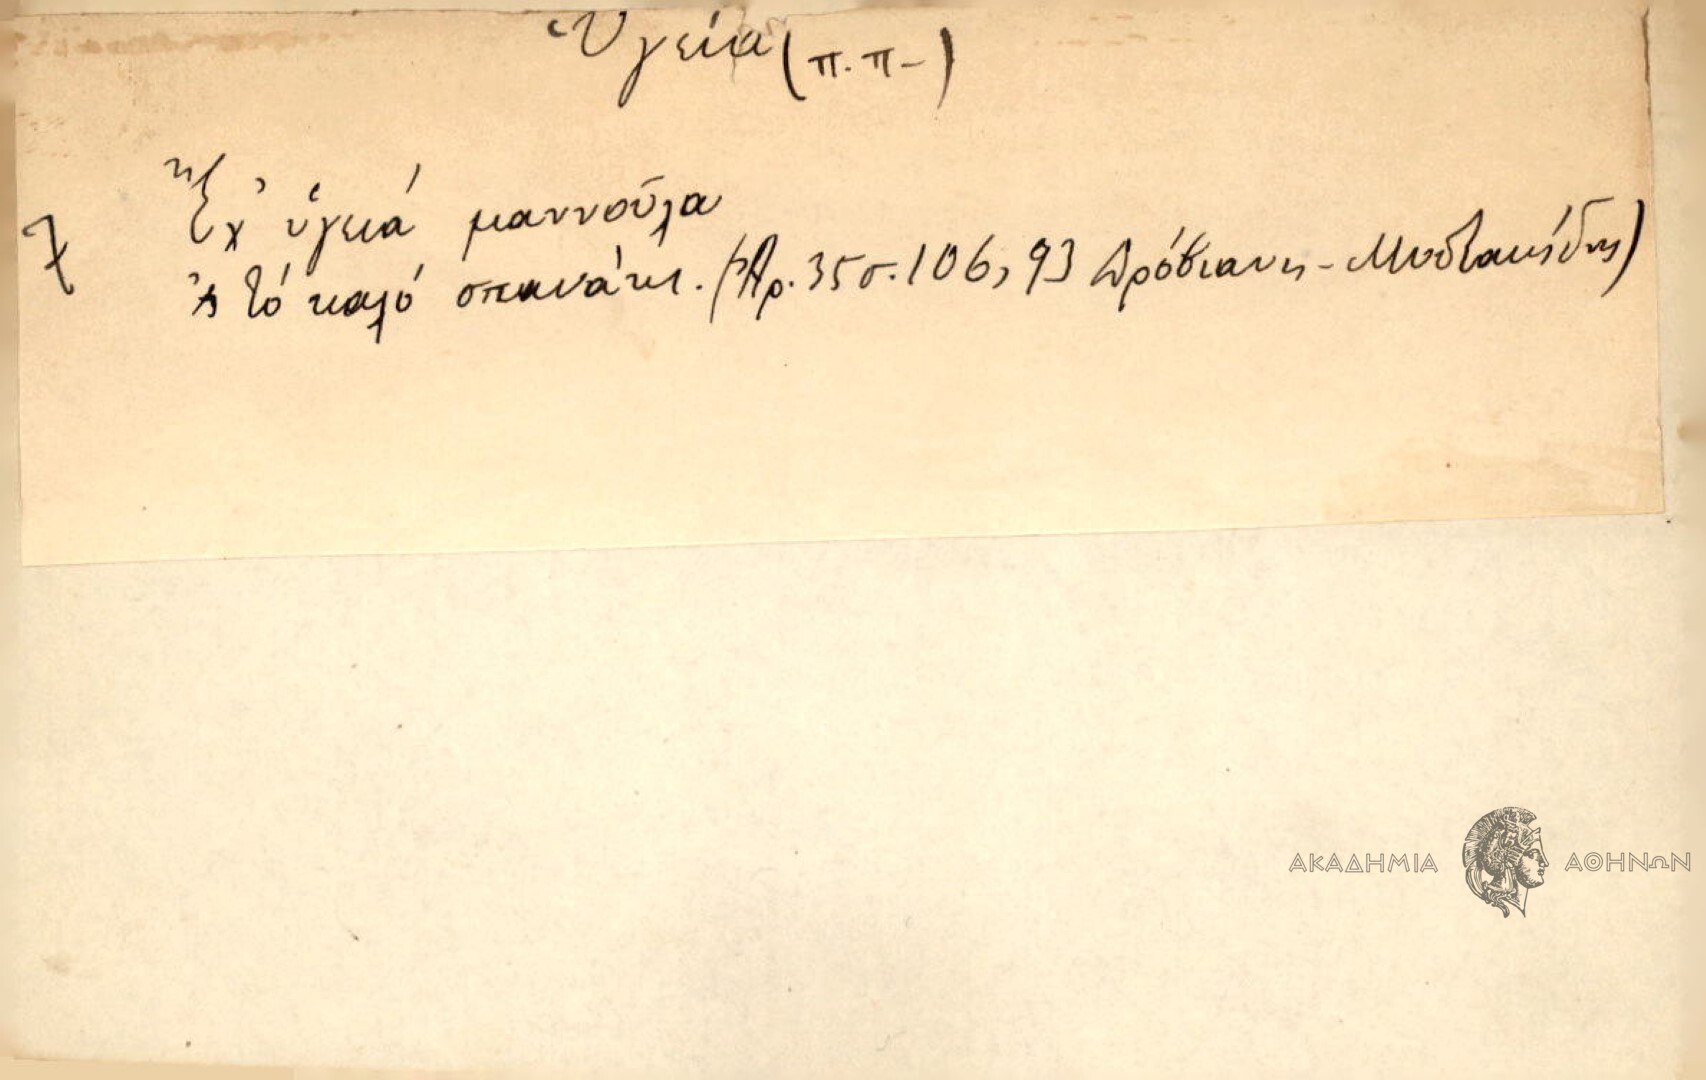 Ὑγεία (π.π-)
Ἔχ' ὑγειά μαννούλα
'ς τό καλό σπανάκι. (Ἀρ. 35 σ. 106, 93 Δρόβιανη - Μυστακίδης)
ΑΚΑΔΗΜΙΑ ΑΘΗΝΩΝ